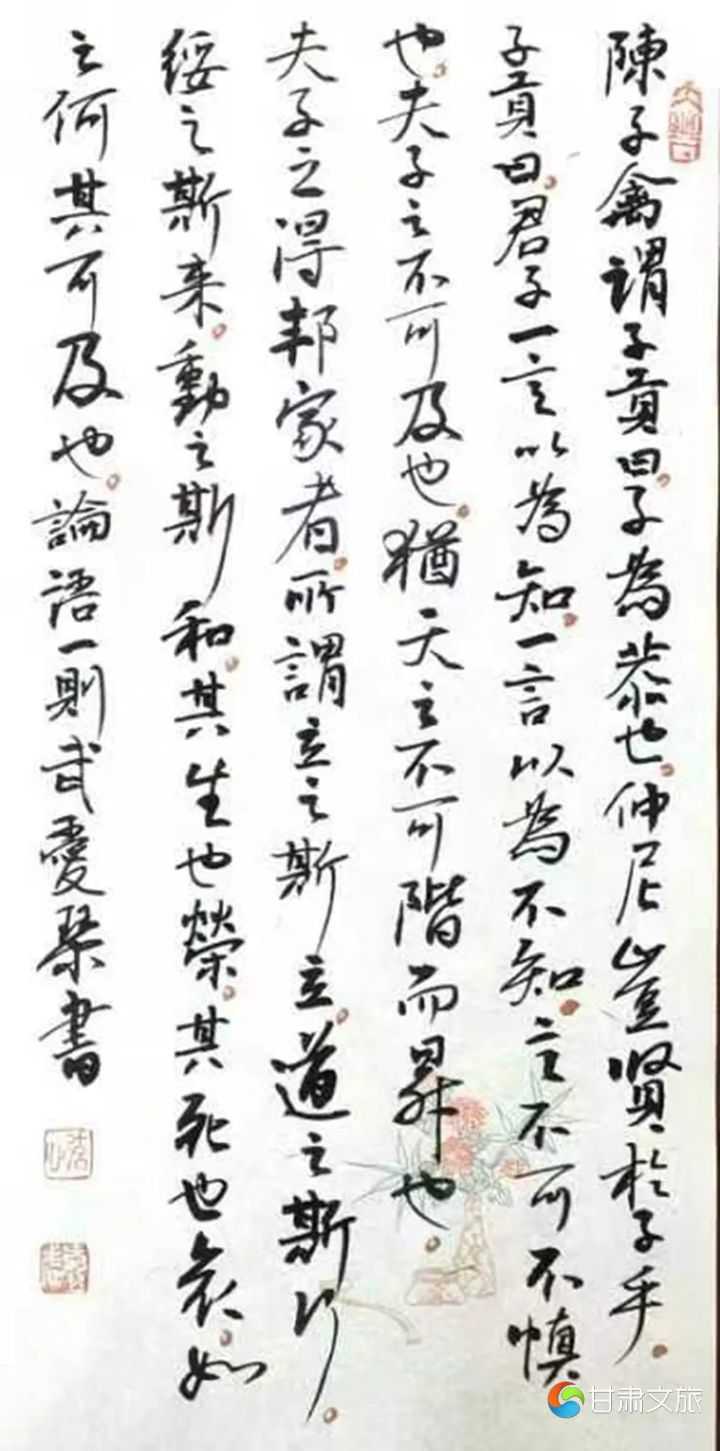 陳子禽謂子貢曰子為恭也仲尼豈賢於子乎
子貢曰君子一言以為知一言以為不知言不可不慎
也夫子之不可及也猶天之不可階而昇也
夫子之得邦家者所謂立之斯立道之斯行
綏之斯来動之斯和其生也榮其死也哀如
之何其可及也論語一則武愛琴書
甘肃文旅